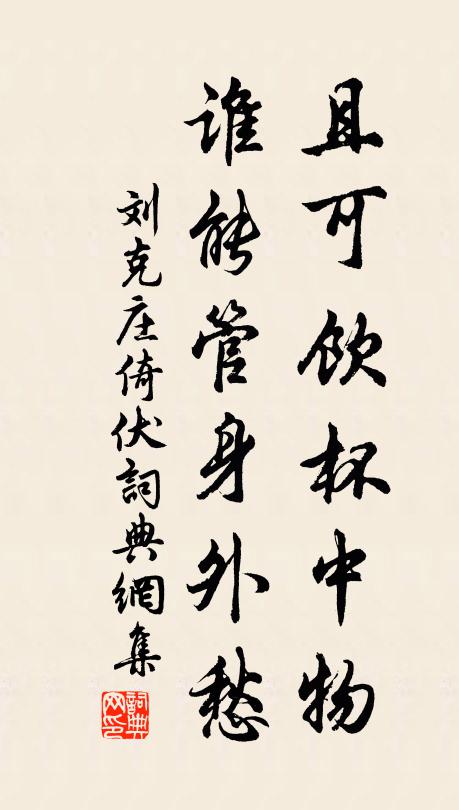 且可饮杯中物
谁能管身外愁
刘克庄倚伏詞典網集
詞典
网印